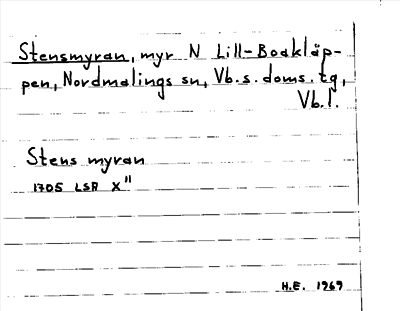 Stensmyran, myr N Lill-Boakläp-
pen, Nordmalings sn, Vb.s.doms.tg,
Vb.l.
Stens myran
1705 LSA X"
H.E. 1969